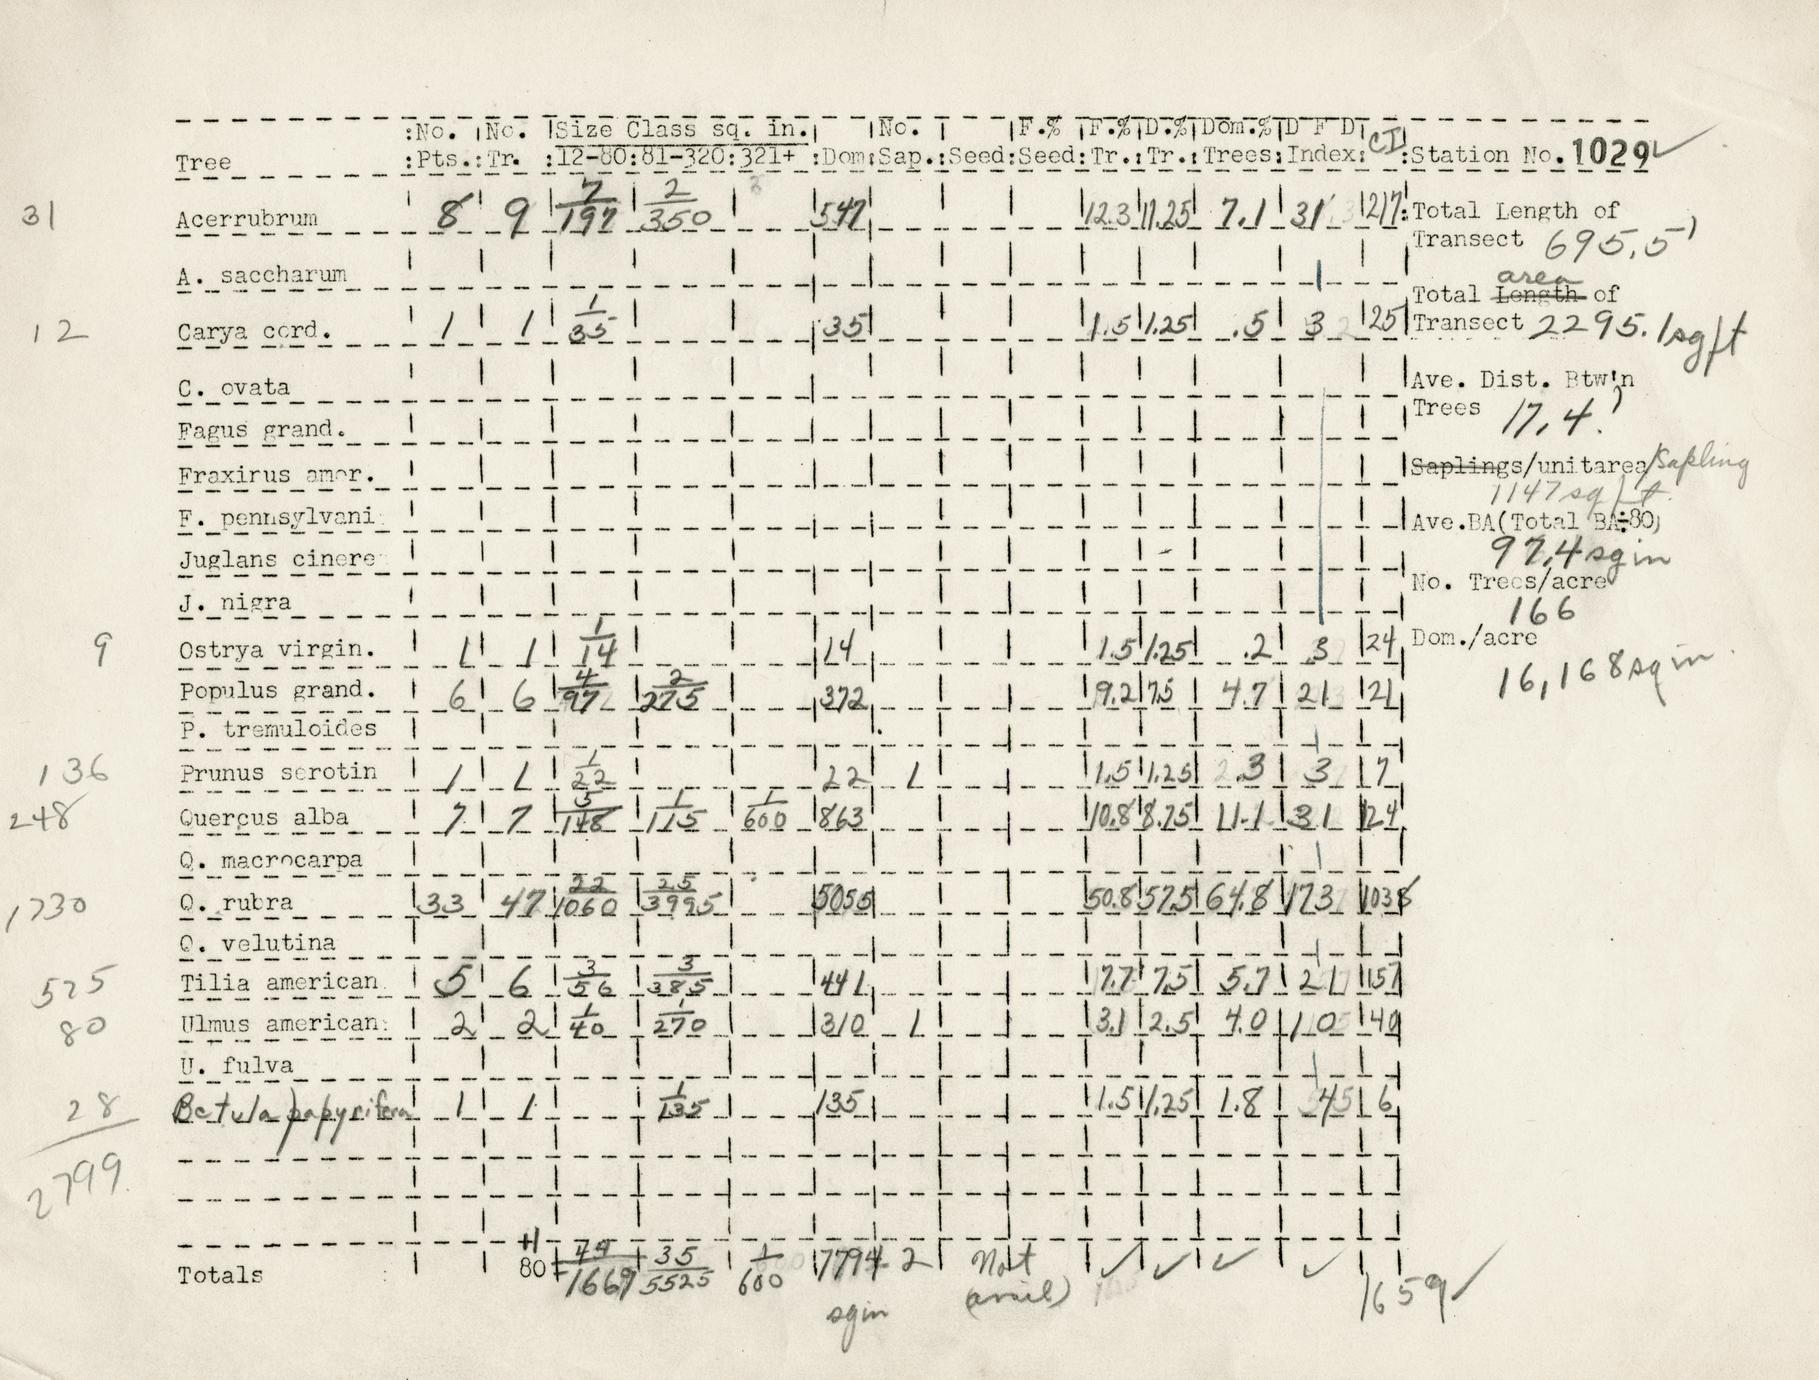 :No. No. Size Class sq. in. No. F.% F.% D.% Dom.% D F D CI
Tree :Pts.: Tr. :12-80:81-320:321+ :Dom: Sap.: Seed: Seed: Tr.: Tr.: Trees: Index: :Station No. 1029 ✓
31 Acerrubrum 8 9 7/197 2/350 547 12.3 11.25 7.1 31 217 :Total Length of
Transect 695.5'
A. saccharum
area
Total Length of
12 Carya cord. 1 1 1/35 35 1.5 1.25 .5 3 25 Transect 2295.1 sq ft
C. ovata Ave. Dist. Btw'n
Trees 17.4'
Fagus grand.
Fraxirus amer. Saplings/unitarea/Sapling
1147 sq ft.
F. pennsylvani Ave.BA(Total BA÷80)
97.4 sq in
Juglans cinere
No. Trees/acre
J. nigra 166
9 Ostrya virgin. 1 1 1/14 14 1.5 1.25 .2 3 24 Dom./acre
16,168 sq in.
Populus grand. 6 6 4/97 2/275 372 9.2 7.5 4.7 21 21
P. tremuloides
136 Prunus serotin 1 1 1/22 22 1 1.5 1.25 .3 3 7
248 Quercus alba 7 7 5/148 1/115 1/600 863 10.8 8.75 11.1 31 124
Q. macrocarpa
1730 Q. rubra 33 47 22/1060 25/3995 5055 50.8 57.5 64.8 173 1038
Q. velutina
525 Tilia american 5 6 3/56 3/385 441 7.7 7.5 5.7 21 157
80 Ulmus american: 2 2 1/40 1/270 310 1 3.1 2.5 4.0 10 40
U. fulva
28 Betula papyrifera 1 1 1/135 135 1.5 1.25 1.8 45 6
2799.
+1
Totals : 80 44/1669 35/5525 1/600 7794 2 Not ✓ ✓ ✓ ✓
sq in (avail) 1659 ✓